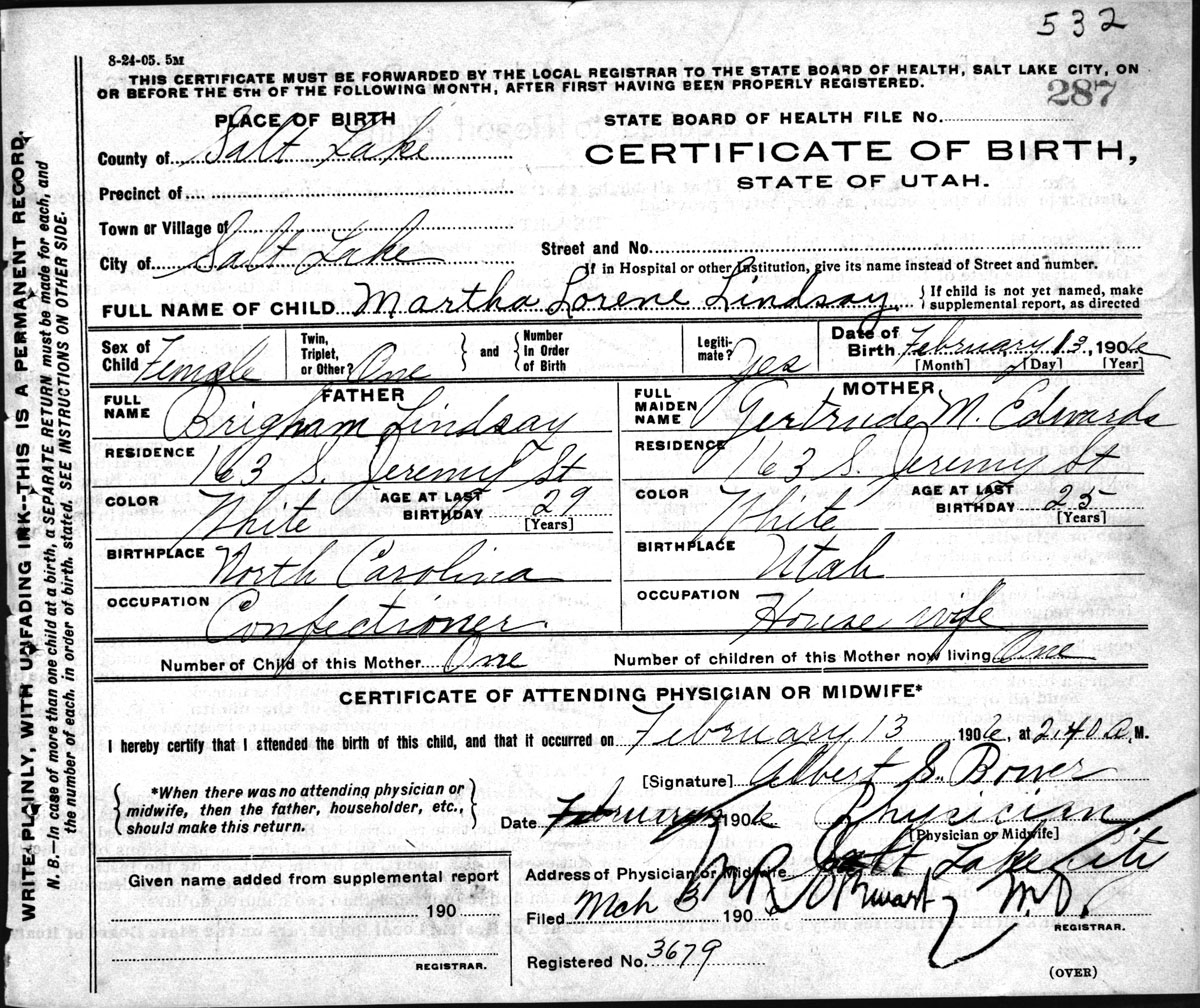 532
8-24-05. 5M
THIS CERTIFICATE MUST BE FORWARDED BY THE LOCAL REGISTRAR TO THE STATE BOARD OF HEALTH, SALT LAKE CITY, ON
OR BEFORE THE 5TH OF THE FOLLOWING MONTH, AFTER FIRST HAVING BEEN PROPERLY REGISTERED.
287
PLACE OF BIRTH
STATE BOARD OF HEALTH FILE No.
County of Salt Lake
CERTIFICATE OF BIRTH,
STATE OF UTAH.
Precinct of
Town or Village of
City of Salt Lake
Street and No.
If in Hospital or other Institution, give its name instead of Street and number.
FULL NAME OF CHILD Martha Lorene Lindsay { If child is not yet named, make
supplemental report, as directed
Sex of Child Female
Twin, Triplet, or Other? One } and { Number In Order of Birth
Legitimate? Yes
Date of Birth February 13, 1906
[Month] [Day] [Year]
FATHER
FULL NAME Brigham Lindsay
RESIDENCE 163 S. Jeremy St
COLOR White AGE AT LAST BIRTHDAY 29
[Years]
BIRTHPLACE North Carolina
OCCUPATION Confectioner
MOTHER
FULL MAIDEN NAME Gertrude M. Edwards
RESIDENCE 163 S. Jeremy St
COLOR White AGE AT LAST BIRTHDAY 25
[Years]
BIRTHPLACE Utah
OCCUPATION House wife
Number of Child of this Mother One Number of children of this Mother now living One
CERTIFICATE OF ATTENDING PHYSICIAN OR MIDWIFE*
I hereby certify that I attended the birth of this child, and that it occurred on February 13 1906, at 2.40 a. M.
[Signature] Albert S. Bower
{ *When there was no attending physician or
midwife, then the father, householder, etc.,
should make this return. }
Date February 1906 Physician
[Physician or Midwife]
Address of Physician or Midwife Salt Lake City
Given name added from supplemental report
190
REGISTRAR.
Filed Mch 3 1906 Stewart M.D.
REGISTRAR.
Registered No. 3679
(OVER)
WRITE PLAINLY, WITH UNFADING INK--THIS IS A PERMANENT RECORD.
N. B.—In case of more than one child at a birth, a SEPARATE RETURN must be made for each, and
the number of each, in order of birth, stated. SEE INSTRUCTIONS ON OTHER SIDE.